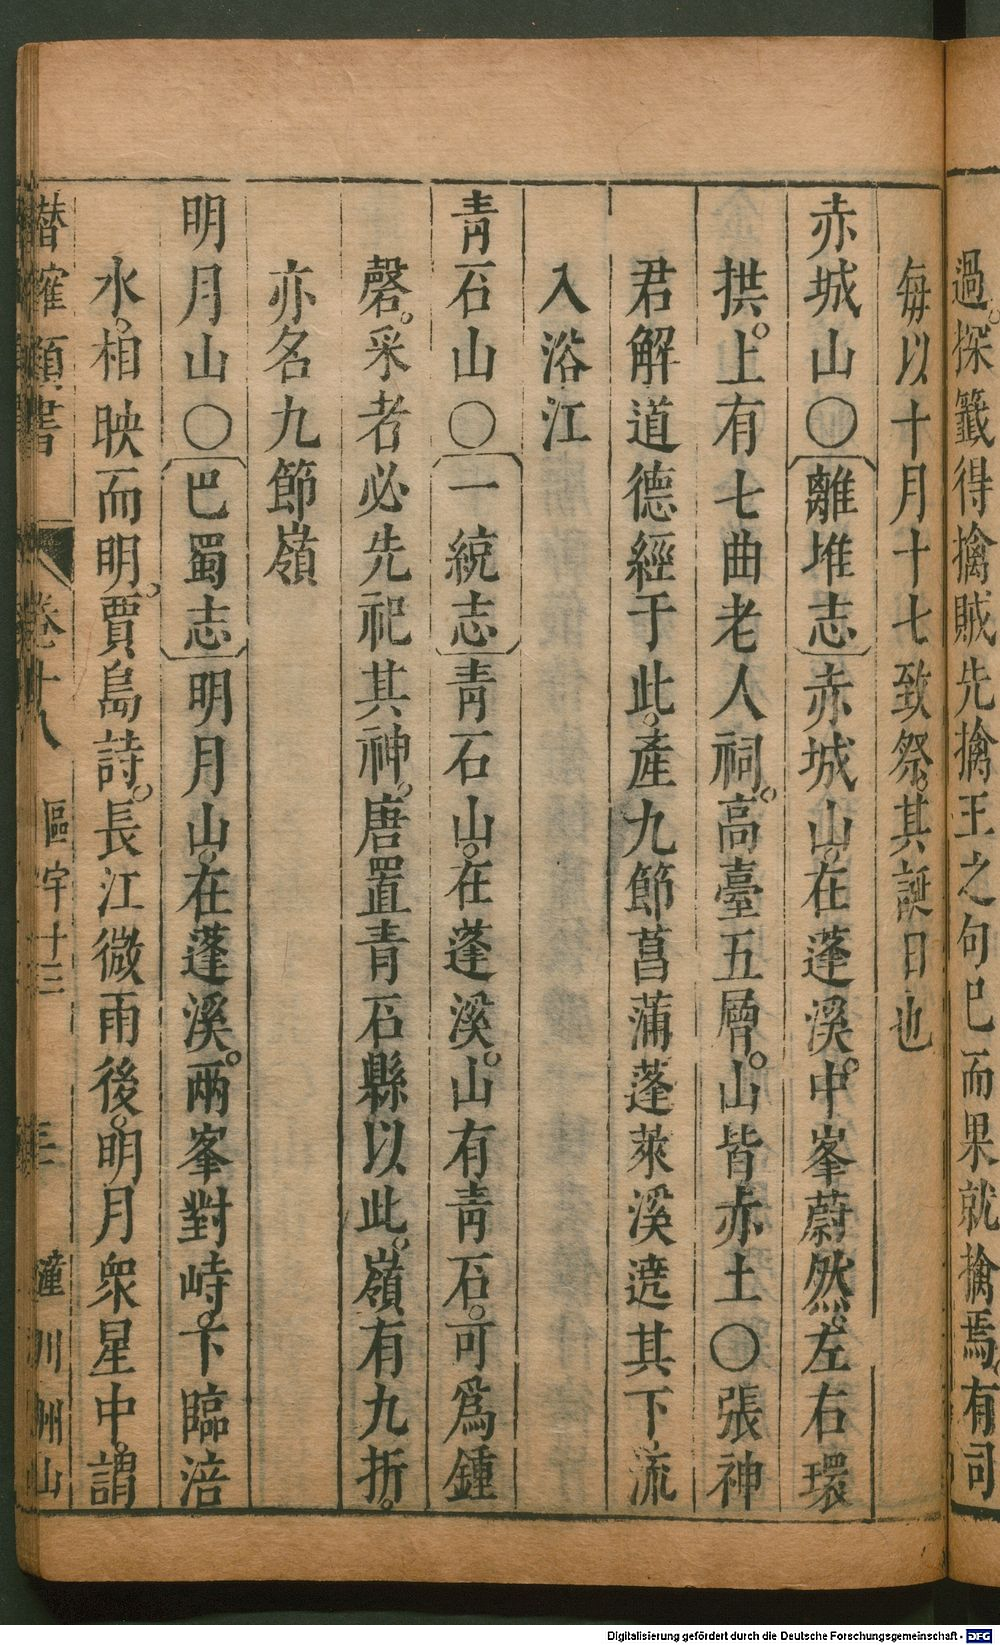 過。探籤得擒賊先擒王之句已而果就擒焉。有司
每以十月十七致祭。其誕日也
赤城山○〔離堆志〕赤城山。在蓬溪。中峯蔚然。左右環
拱。上有七曲老人祠。高臺五層。山皆赤土○張神
君解道德經于此。產九節菖蒲蓬萊溪遶其下流
入浴江
青石山○〔一統志〕青石山。在蓬溪。山有青石。可爲鍾
磬。采者必先祀其神。唐置青石縣以此。嶺有九折。
亦名九節嶺
明月山○〔巴蜀志〕明月山。在蓬溪。兩峯對峙。下臨涪
水。相映而明。賈島詩。長江微雨後。明月衆星中。謂
潛確類書 卷十八 區宇十三 三 潼川州山
Digitalisierung gefördert durch die Deutsche Forschungsgemeinschaft - DFG